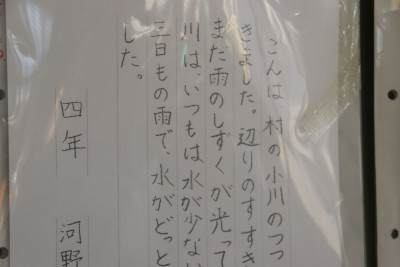 こんは、村の小川のつつ
きました。辺りのすすき
また雨のしずくが光って
川は、いつもは水が少ない
三日もの雨で、水がどっと
した。
四年 河野